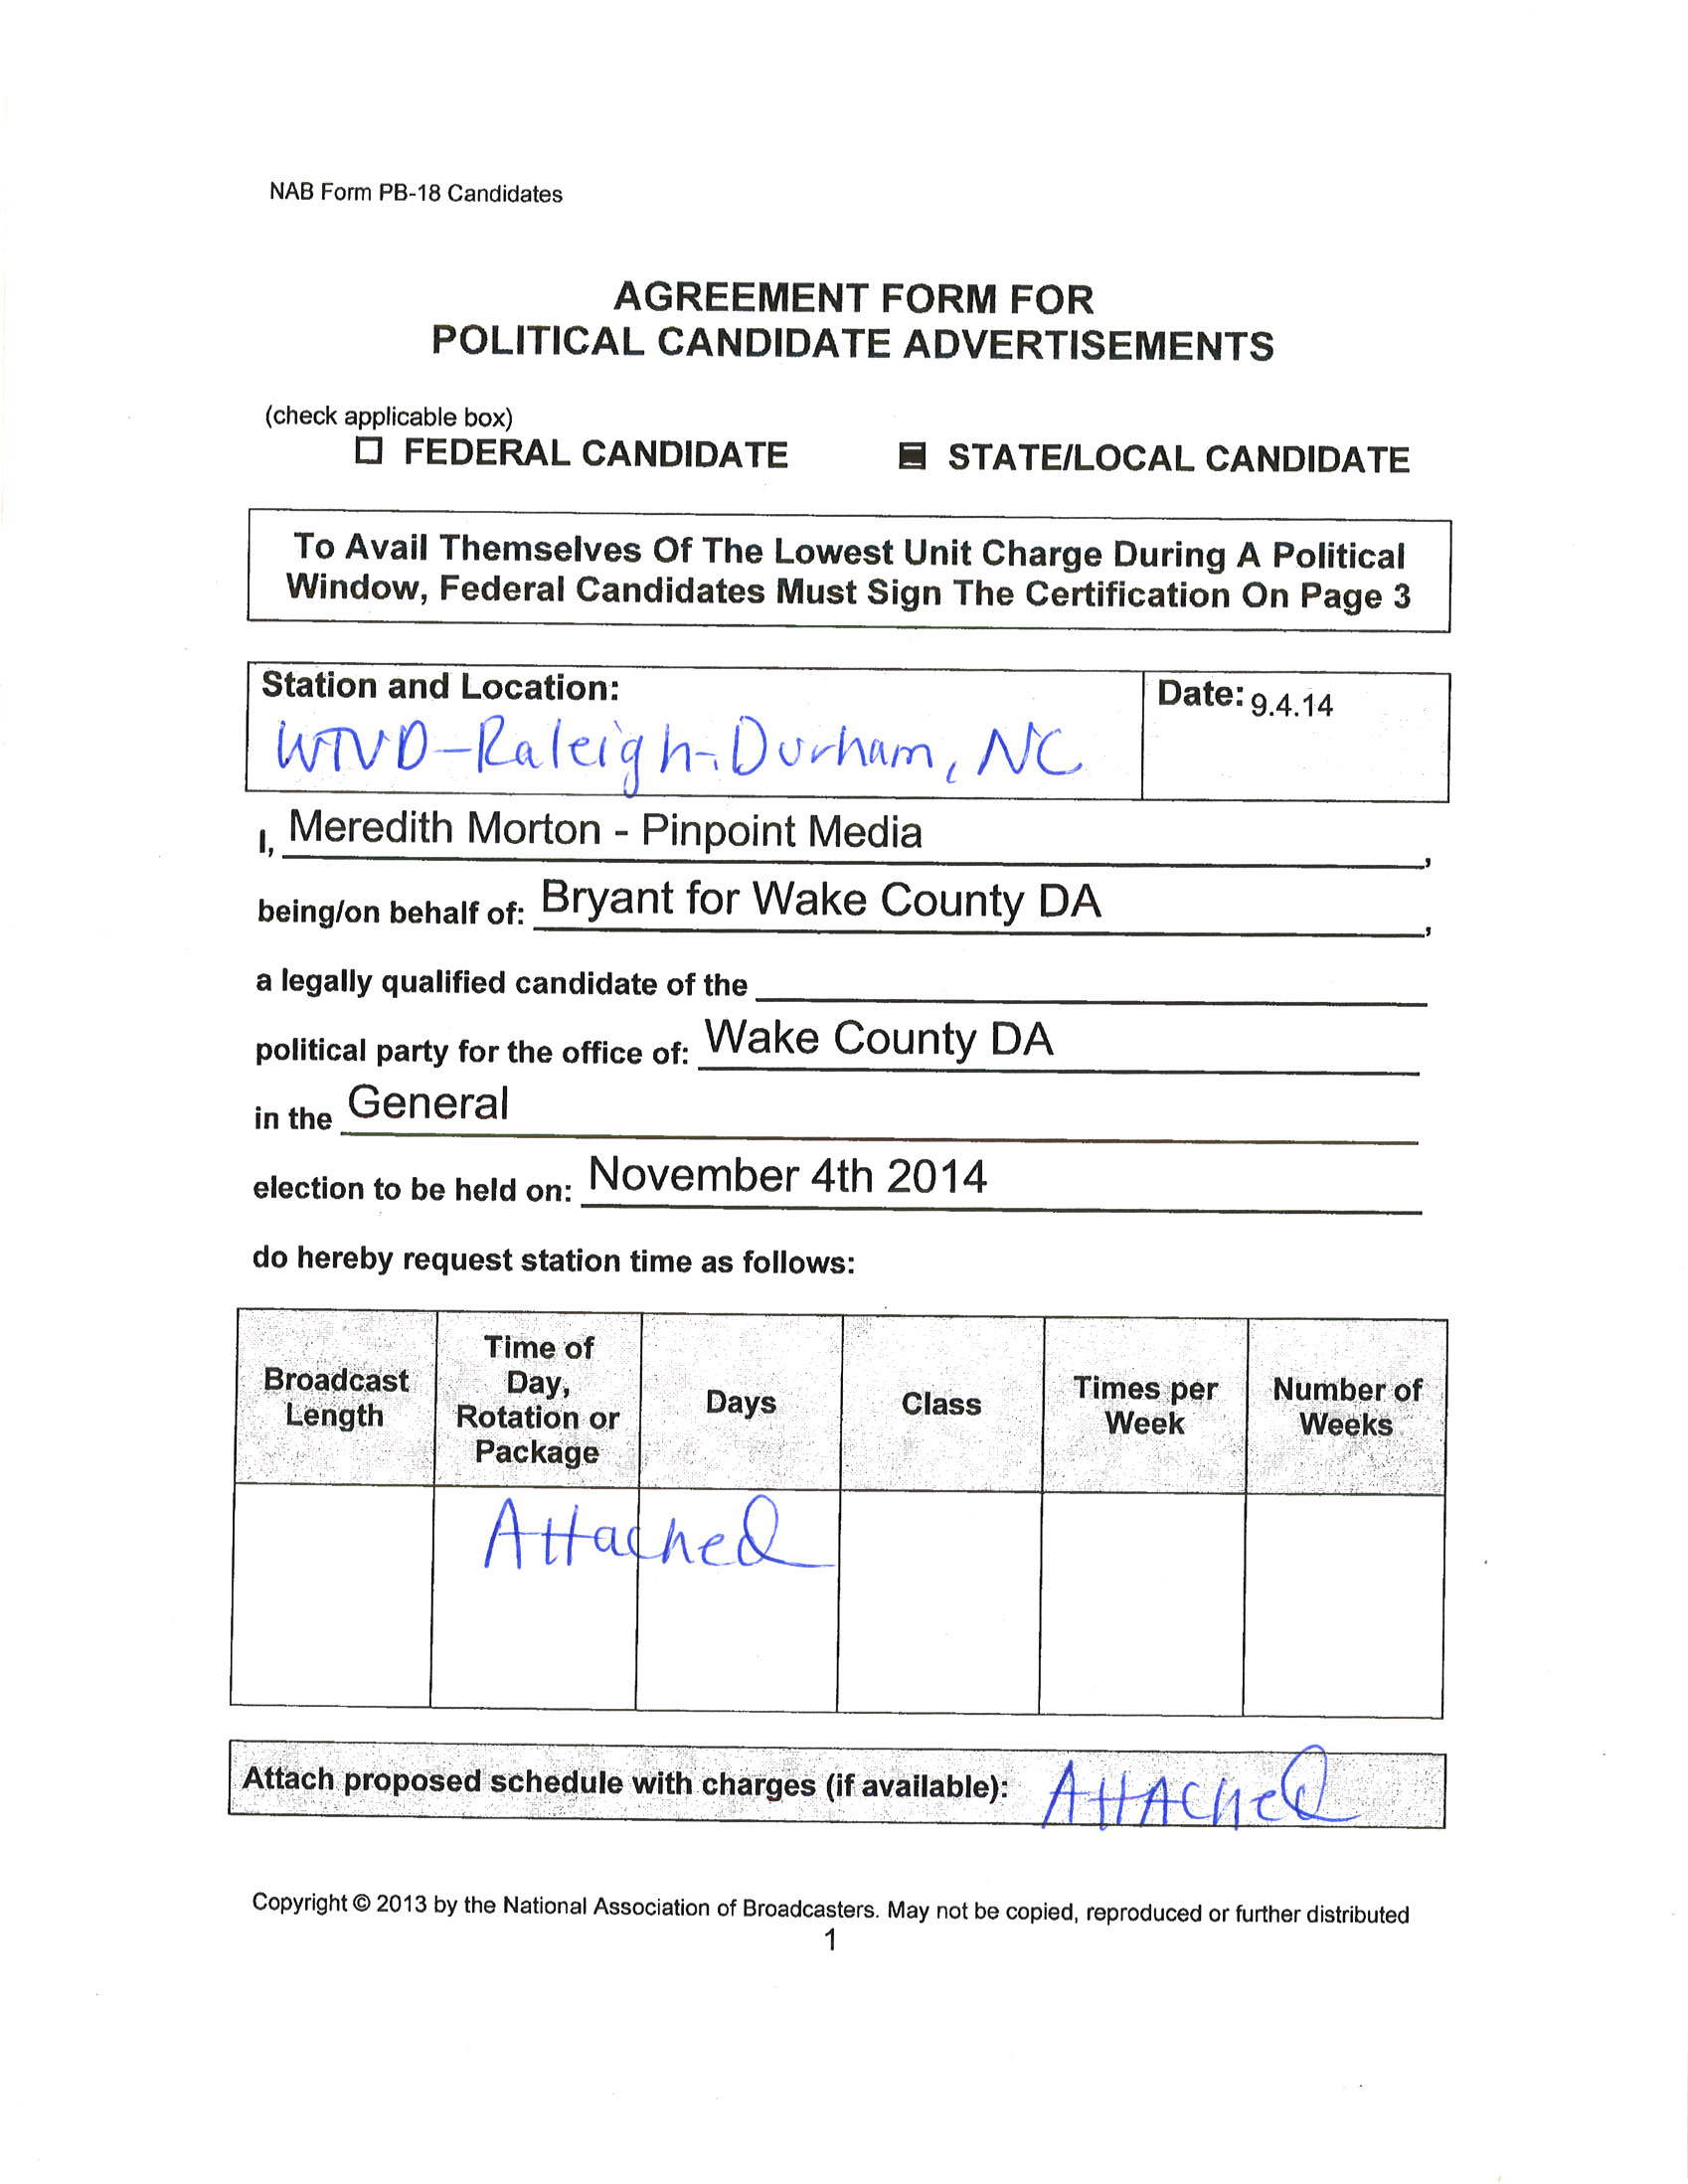 NAB Form PB-18 Candidates
AGREEMENT FORM FOR
POLITICAL CANDIDATE ADVERTISEMENTS
(check applicable box)
☐ FEDERAL CANDIDATE ☒ STATE/LOCAL CANDIDATE
To Avail Themselves Of The Lowest Unit Charge During A Political
Window, Federal Candidates Must Sign The Certification On Page 3
Station and Location: Date: 9.4.14
WTVD-Raleigh-Durham, NC
I, Meredith Morton - Pinpoint Media ,
being/on behalf of: Bryant for Wake County DA ,
a legally qualified candidate of the
political party for the office of: Wake County DA
in the General
election to be held on: November 4th 2014
do hereby request station time as follows:
Broadcast Length
Time of Day, Rotation or Package
Days
Class
Times per Week
Number of Weeks
Attached
Attach proposed schedule with charges (if available): Attached
Copyright © 2013 by the National Association of Broadcasters. May not be copied, reproduced or further distributed
1